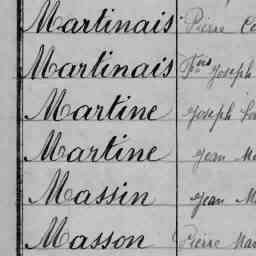 Martinais Pierre
Martinais Fçois Joseph
Martine Joseph
Martine Jean
Massin Jean
Masson Pierre